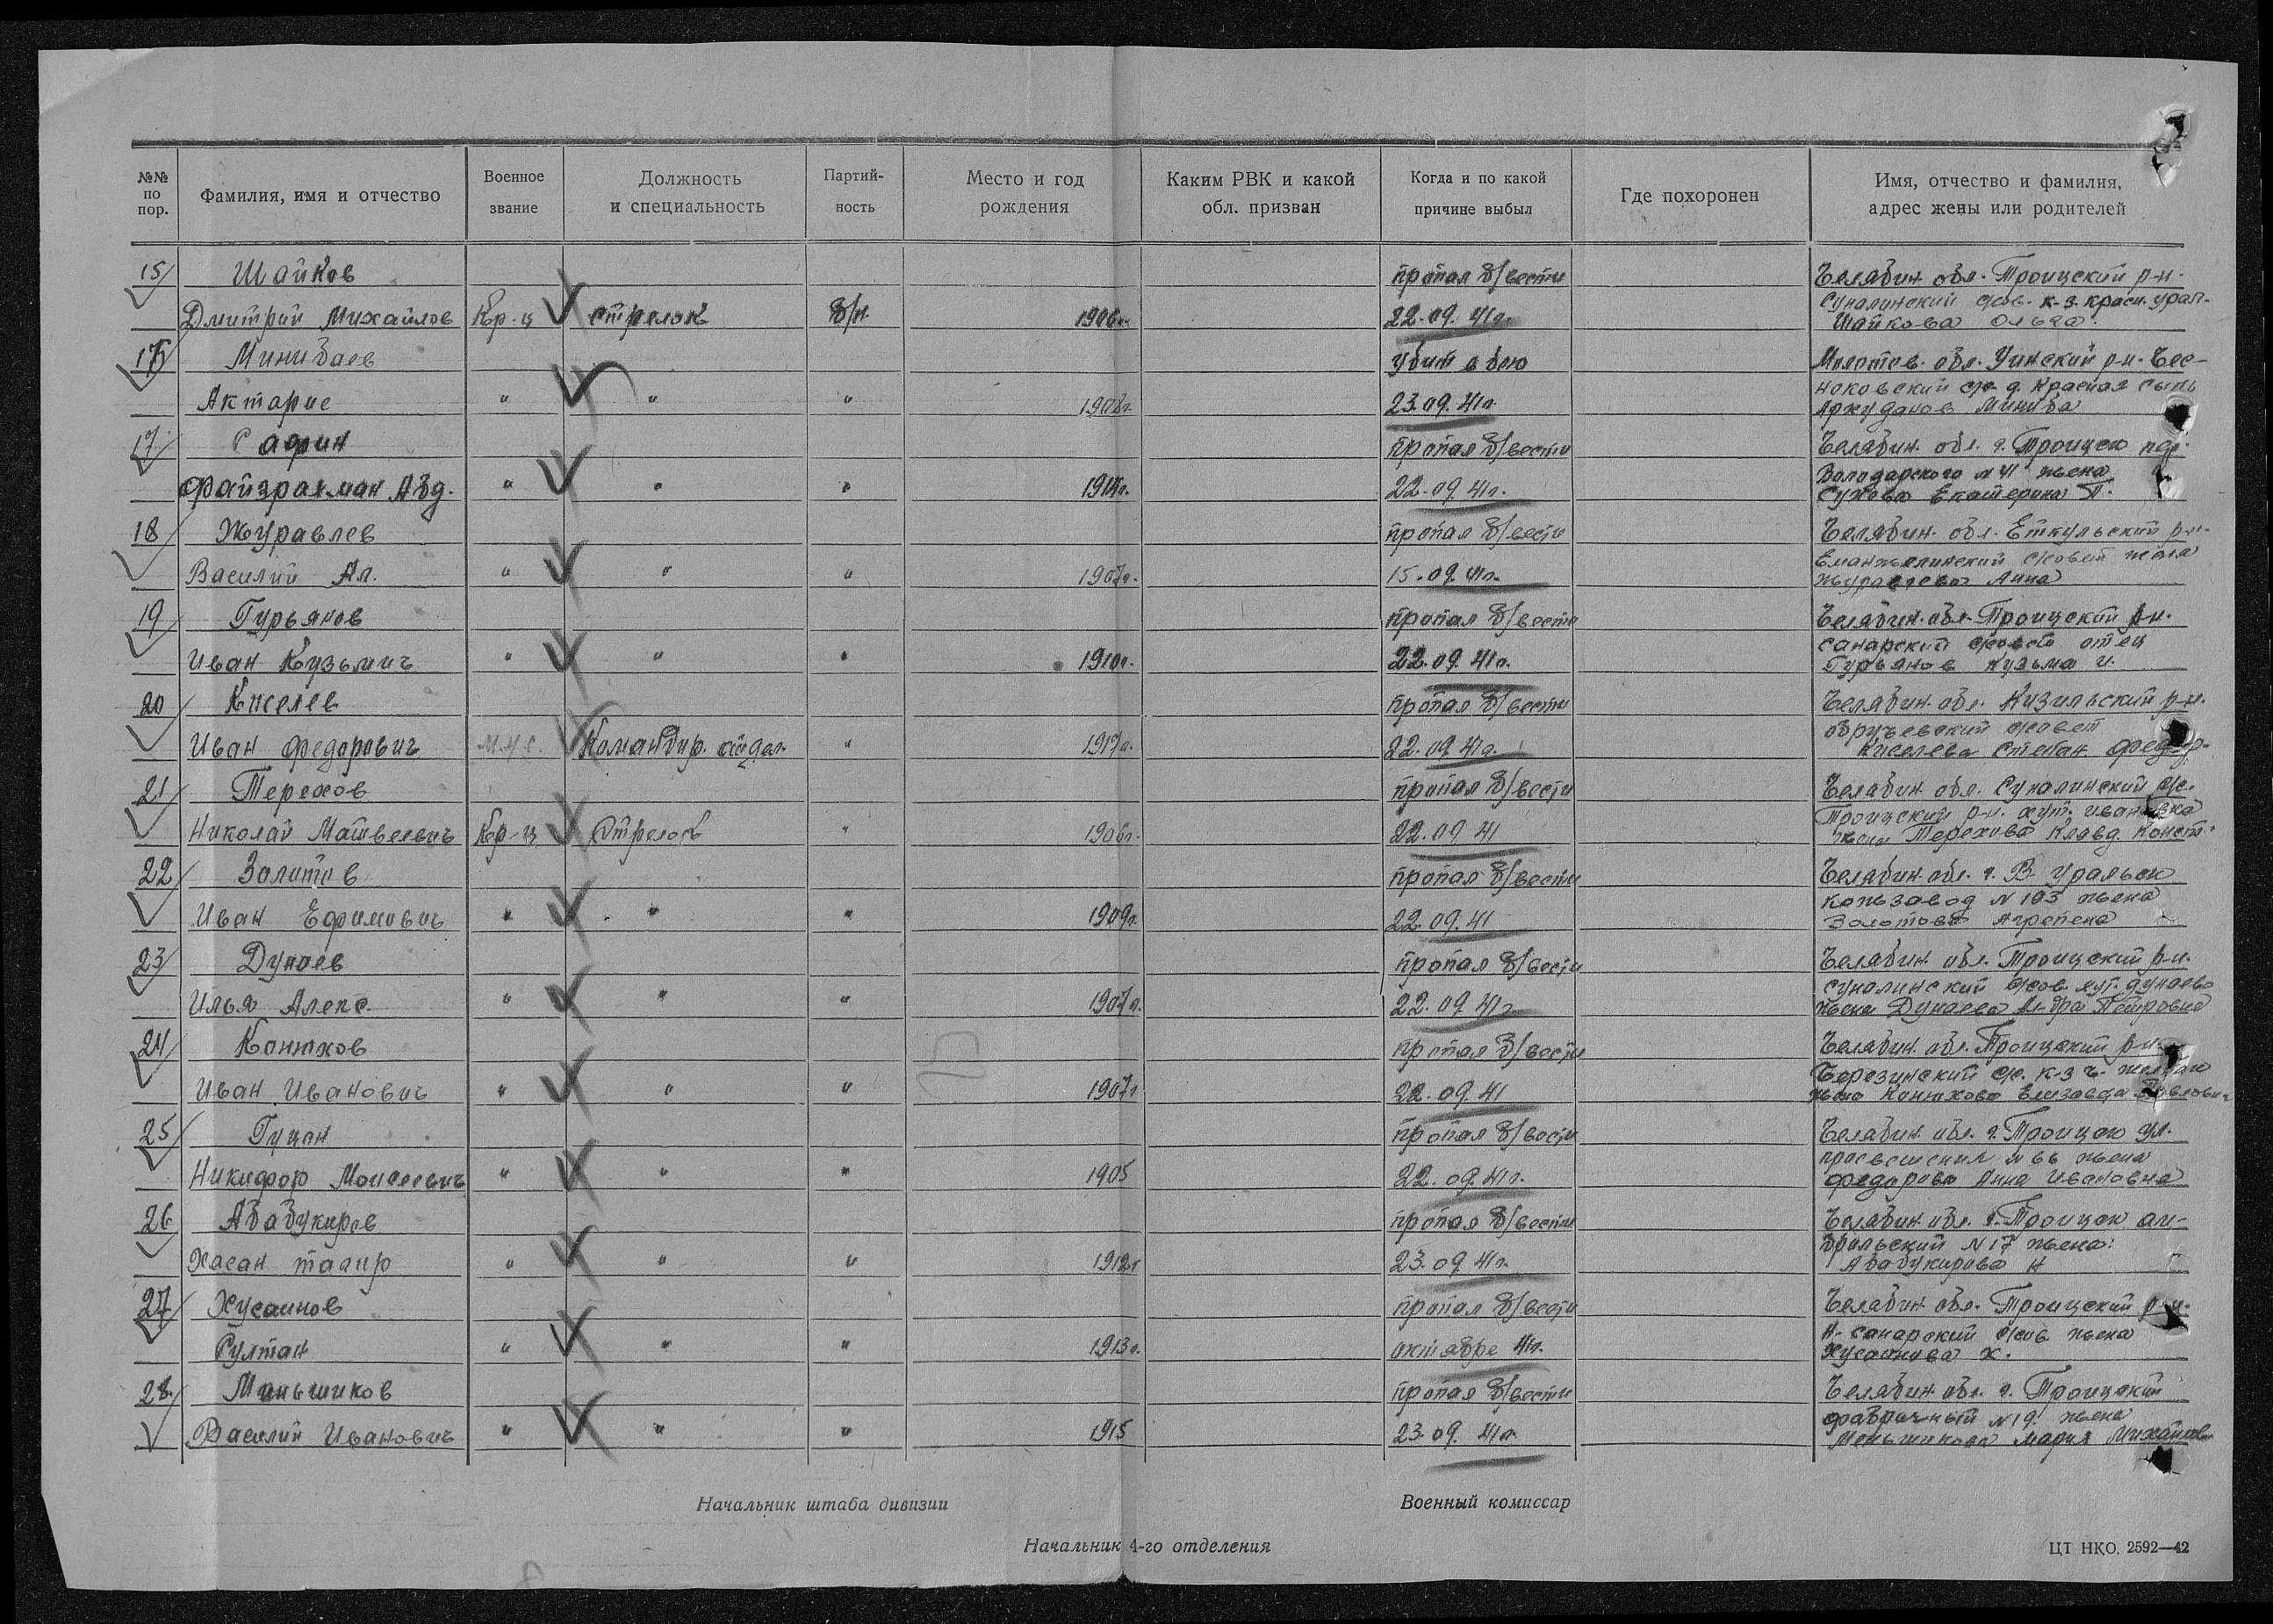 №№ по пор.
Фамилия, имя и отчество
Военное звание
Должность и специальность
Партий-ность
Место и год рождения
Каким РВК и какой обл. призван
Когда и по какой причине выбыл
Где похоронен
Имя, отчество и фамилия, адрес жены или родителей
15 Шайков пропал б/вести Челябин. обл. Троицский р-н.
Суналинский с/сов. к-з. красн. урал.
Дмитрий Михайлов Кр-ц стрелок б/п. 1906г. 22.09.41г. Шайкова Ольга.
Минибаев убит в бою Молотов. обл. Уинский р-н. Чес-
ноковский с/с д. Красная
Актарис " " " 1908г. 23.09.41г. Миниба
17 Сафин пропал б/вести Челябин. обл. г. Троицск пер.
Володарского N 41 жена
Файзрахман Абд. " " " 1914г. 22.09.41г. Сухова Екатерина П.
18 Журавлев пропал б/вести Челябин. обл. Еткульский р-н.
Еманжелинский с/совет жена
Василий Ал. " " " 1907г. 15.09.41г. Журавлева Анна
19 Гурьянов пропал б/вести Челябин. обл. Троицский р-н.
Санарский с/совет отец
Иван Кузьмич " " " 1910г. 22.09.41г. Гурьянов Кузьма И.
20 Киселев пропал б/вести Челябин. обл. Кизильский р-н.
обручевский с/совет
Иван Федорович М.Н.С. Командир. отдел. " 1917г. 22.09.41г. Киселева Степан. Федор.
21 Терехов пропал б/вести Челябин. обл. Суналинский с/с.
Троицский р-н. хут. ивановка
Николай Матвеевич Кр-ц Стрелок " 1906г. 22.09.41 жена Терехова Клавд. Конст.
22 Золотов пропал б/вести Челябин. обл. г. В. Уральск
коньзавод N 103 жена
Иван Ефимович " " " 1909г. 22.09.41 Золотова Агропена
23 Дунаев пропал б/вести Челябин. обл. Троицский р-н.
Суналинский с/сов. хут. дунаево
Илья Алекс. " " " 1907г. 22.09.41г. жена Дунаева Ал-дра Петровна
24 Конюхов пропал б/вести Челябин. обл. Троицский р-н.
Березинский с/с. к-з
Иван Иванович " " " 1907г 22.09.41 жена Конюхова Елизавета Павловн
25 Гуцан пропал б/вести Челябин. обл. г. Троицск ул.
просвещения N 66 жена
Никифор Моисеевич " " " 1905 22.09.41г. Федорова Анна Ивановна
26 Абабукиров пропал б/вести Челябин. обл. г. Троицск
N 17 жена:
Хасан таагир " " " 1912г 23.09.41г. Абабукирова Н
27 Хусаинов пропал б/вести Челябин. обл. Троицский р-н.
Н-санарский с/сов. жена
Султан " " " 1913г. октябре 41г. Хусаинова Х.
28. Миньшиков пропал б/вести Челябин. обл. г. Троицский
фабричный N 19. жена
Василий Иванович " " " 1915 23.09.41г. Меньшикова Мария Михайлов
Начальник штаба дивизии Военный комиссар
Начальник 4-го отделения
ЦТ НКО. 2592—42